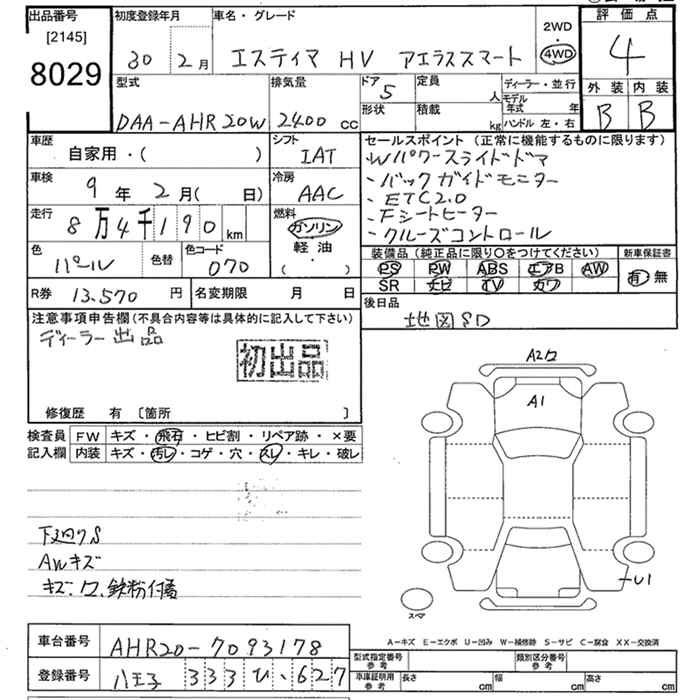 出品番号
[2145]
8029
初度登録年月
30 2月
車名・グレード
エスティマ HV アエラススマート
2WD
・
4WD
評価点
4
外装 内装
B B
型式
DAA-AHR20W
排気量
2400 cc
ドア 5
形状
定員 人
積載 kg
ディーラー・並行
モデル年式 年
ハンドル 左・右
車歴
自家用・( )
シフト
IAT
車検
9年 2月( 日)
冷房
AAC
走行
8万4千190 km
燃料
ガソリン
・
軽油
( ・ )
色
パール
色替
色コード
070
R券 13.570 円
名変期限 月 日
セールスポイント (正常に機能するものに限ります)
・Wパワースライドドア
・バックガイドモニター
・ETC2.0
・Fシートヒーター
・クルーズコントロール
装備品 (純正品に限り〇をつけてください)
PS PW ABS エアB AW
SR ナビ TV カワ
新車保証書
有・無
後日品
地図SD
注意事項申告欄 (不具合内容等は具体的に記入して下さい)
ディーラー出品
初出品
修復歴 有 〔箇所 〕
検査員記入欄
FW キズ・飛石・ヒビ割・リペア跡・×要
内装 キズ・汚レ・コゲ・穴・スレ・キレ・破レ
下廻りS
AWキズ
キズ・ワ、鉄粉付着
A2ワ
A1
U1
スペア
A-キズ E-エクボ U-凹み W-補修跡 S-サビ C-腐食 XX-交換済
車台番号 AHR20-7093178
登録番号 八王子 333 ひ・627
型式指定番号 参考
類別区分番号 参考
車庫証明用 参考
長さ cm
幅 cm
高さ cm